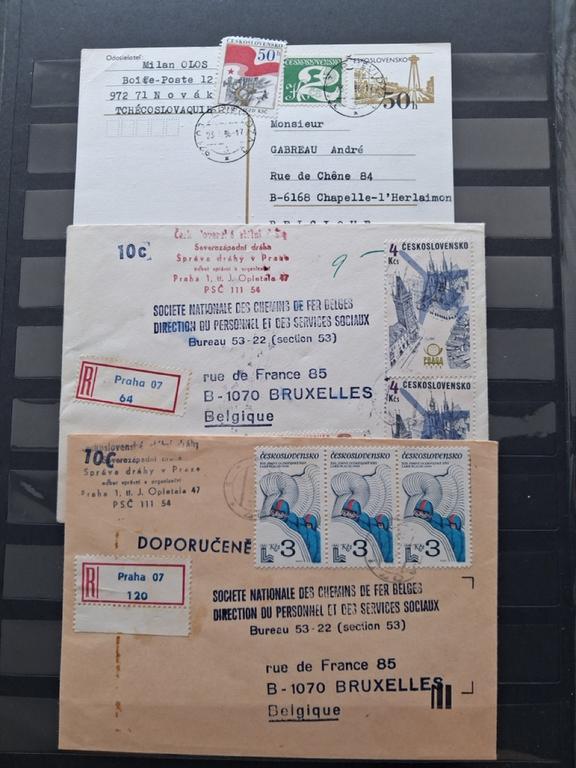 Odosielateľ:
Milan OLOS
Boite-Poste 12
972 71 Novák
TCHÉCOSLOVAQUIE
ČESKOSLOVENSKO
50h
ČESKOSLOVENSKO
ČESKOSLOVENSKO
50h
Monsieur
GABREAU André
Rue de Chêne 84
B-6168 Chapelle-l'Herlaimon
BELGIQUE
10c
Severozápadní dráha
Správa dráhy v Praze
odbor správní a organizační
Praha 1, tř. J. Opletala 47
PSČ 111 54
9 -
4 ČESKOSLOVENSKO
Kčs
PRAGA
SOCIETE NATIONALE DES CHEMINS DE FER BELGES
DIRECTION DU PERSONNEL ET DES SERVICES SOCIAUX
Bureau 53-22 (section 53)
R Praha 07
64
rue de France 85
B-1070 BRUXELLES
Belgique
4 ČESKOSLOVENSKO
Kčs
10c
Severozápadní dráha
Správa dráhy v Praze
odbor správní a organizační
Praha 1, tř. J. Opletala 47
PSČ 111 54
ČESKOSLOVENSKO
Kčs 3
ČESKOSLOVENSKO
Kčs 3
ČESKOSLOVENSKO
Kčs 3
DOPORUČENĚ
R Praha 07
120
SOCIETE NATIONALE DES CHEMINS DE FER BELGES
DIRECTION DU PERSONNEL ET DES SERVICES SOCIAUX
Bureau 53-22 (section 53)
rue de France 85
B-1070 BRUXELLES
Belgique